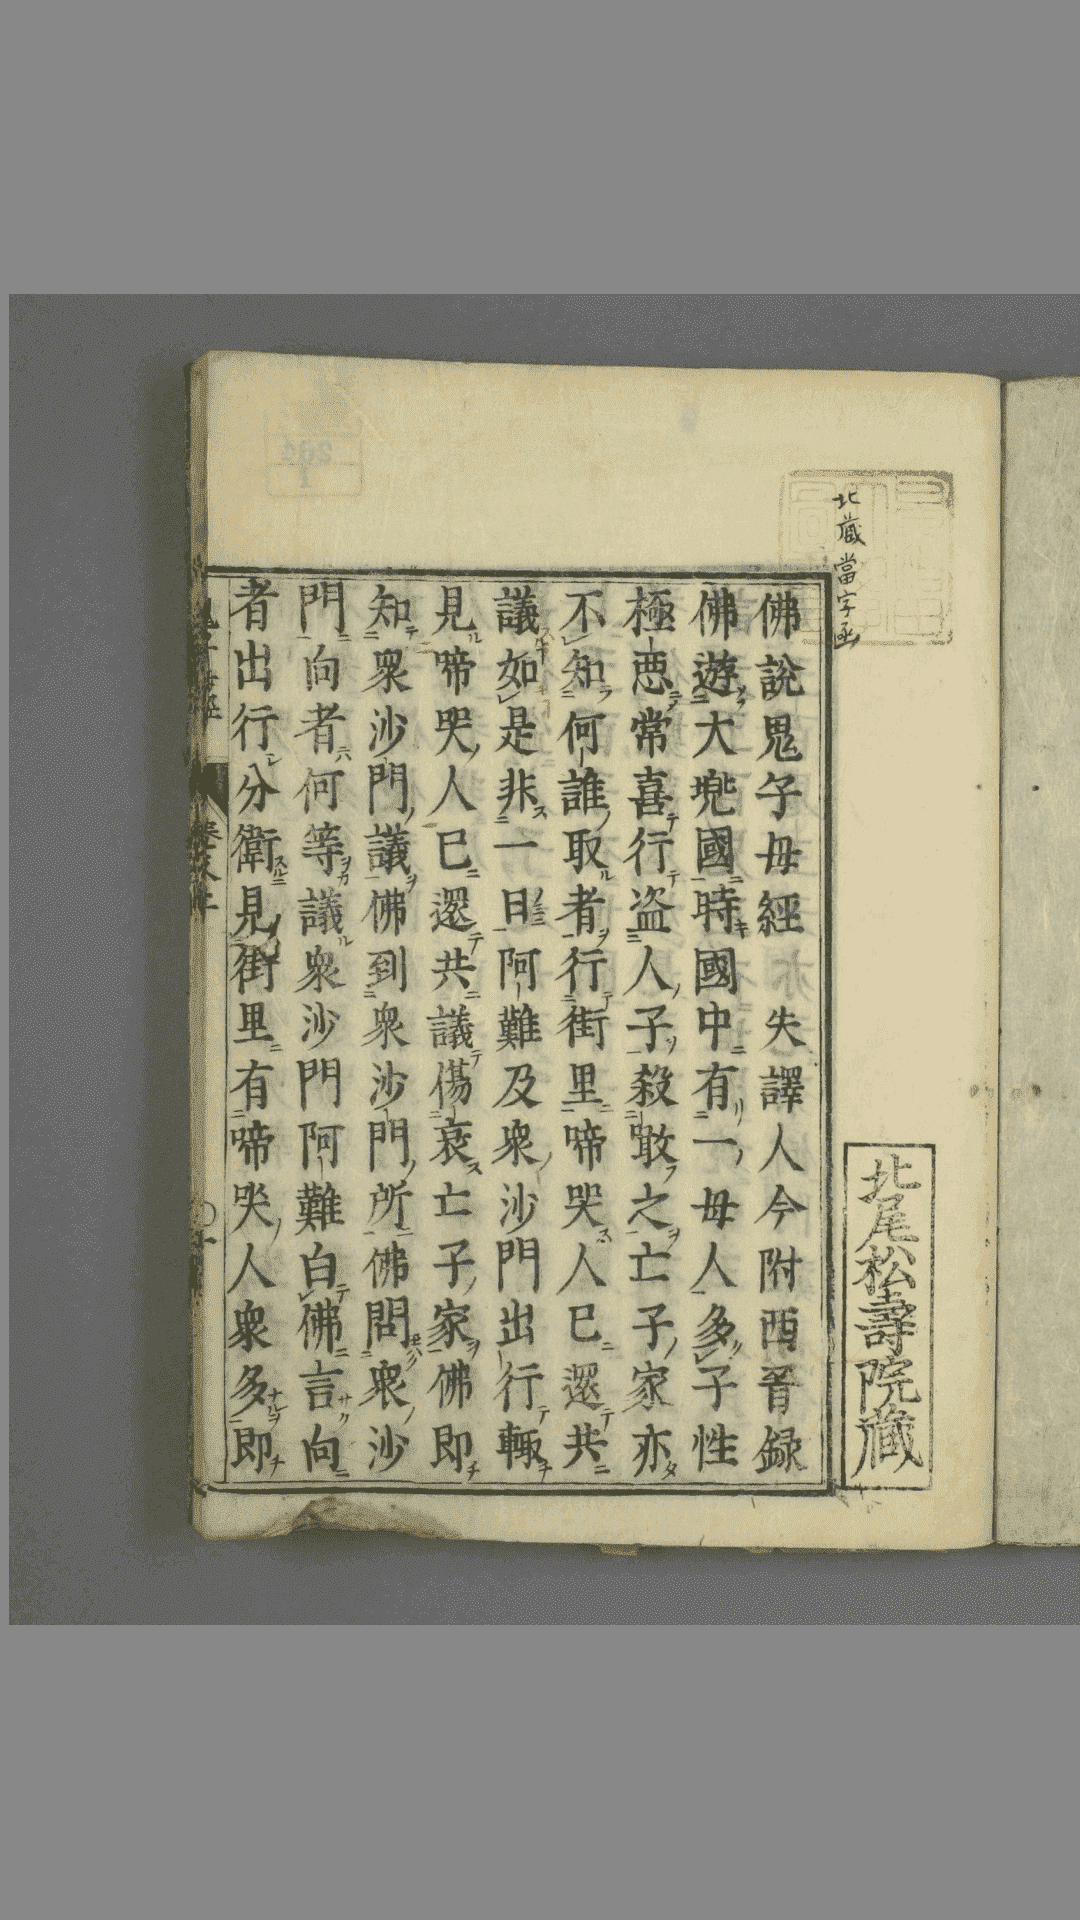 北藏當字函
北尾松壽院藏
佛說鬼子母經 失譯人今附西晉録
佛遊大兠國時國中有一母人多子性
極惡常喜行盗人子殺噉之亡子家亦
不知何誰取者行街里啼哭人已還共
議如是非一日阿難及衆沙門出行輙
見啼哭人已還共議傷哀亡子家佛即
知衆沙門議佛到衆沙門所佛問衆沙
門向者何等議衆沙門阿難白佛言向
者出行分衛見街里有啼哭人衆多即